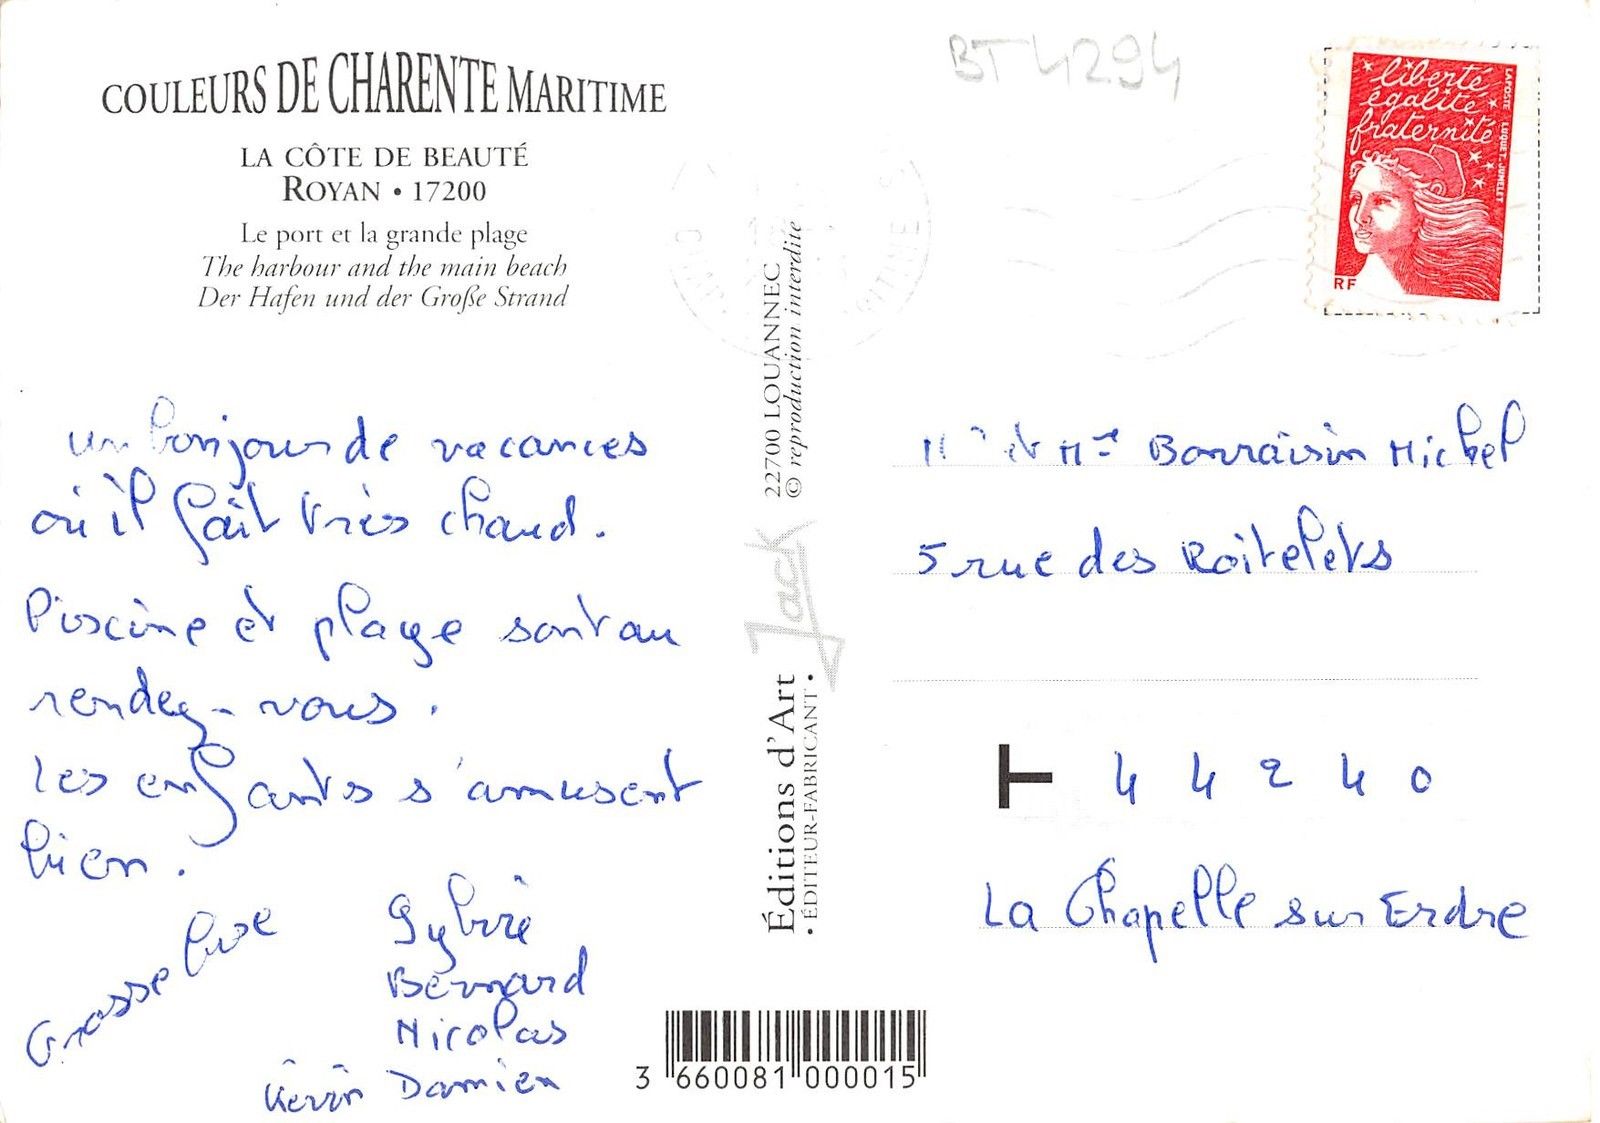 COULEURS DE CHARENTE MARITIME
LA CÔTE DE BEAUTÉ
ROYAN • 17200
Le port et la grande plage
The harbour and the main beach
Der Hafen und der Große Strand
un bonjour de vacances
où il fait très chaud.
Piscine et plage sont au
rendez-vous.
Les enfants s'amusent
bien.
Grosse bise
Sylvie
Bernard
Nicolas
Kévin Damien
22700 LOUANNEC
© reproduction interdite
Jack
Éditions d'Art
• ÉDITEUR-FABRICANT •
3 660081 000015
BT 4294
liberté
égalité
fraternité
RF
LA POSTE LUQUET.JUMELET
Michel
5 rue des Roitelets
T 44240
La Chapelle sur Erdre